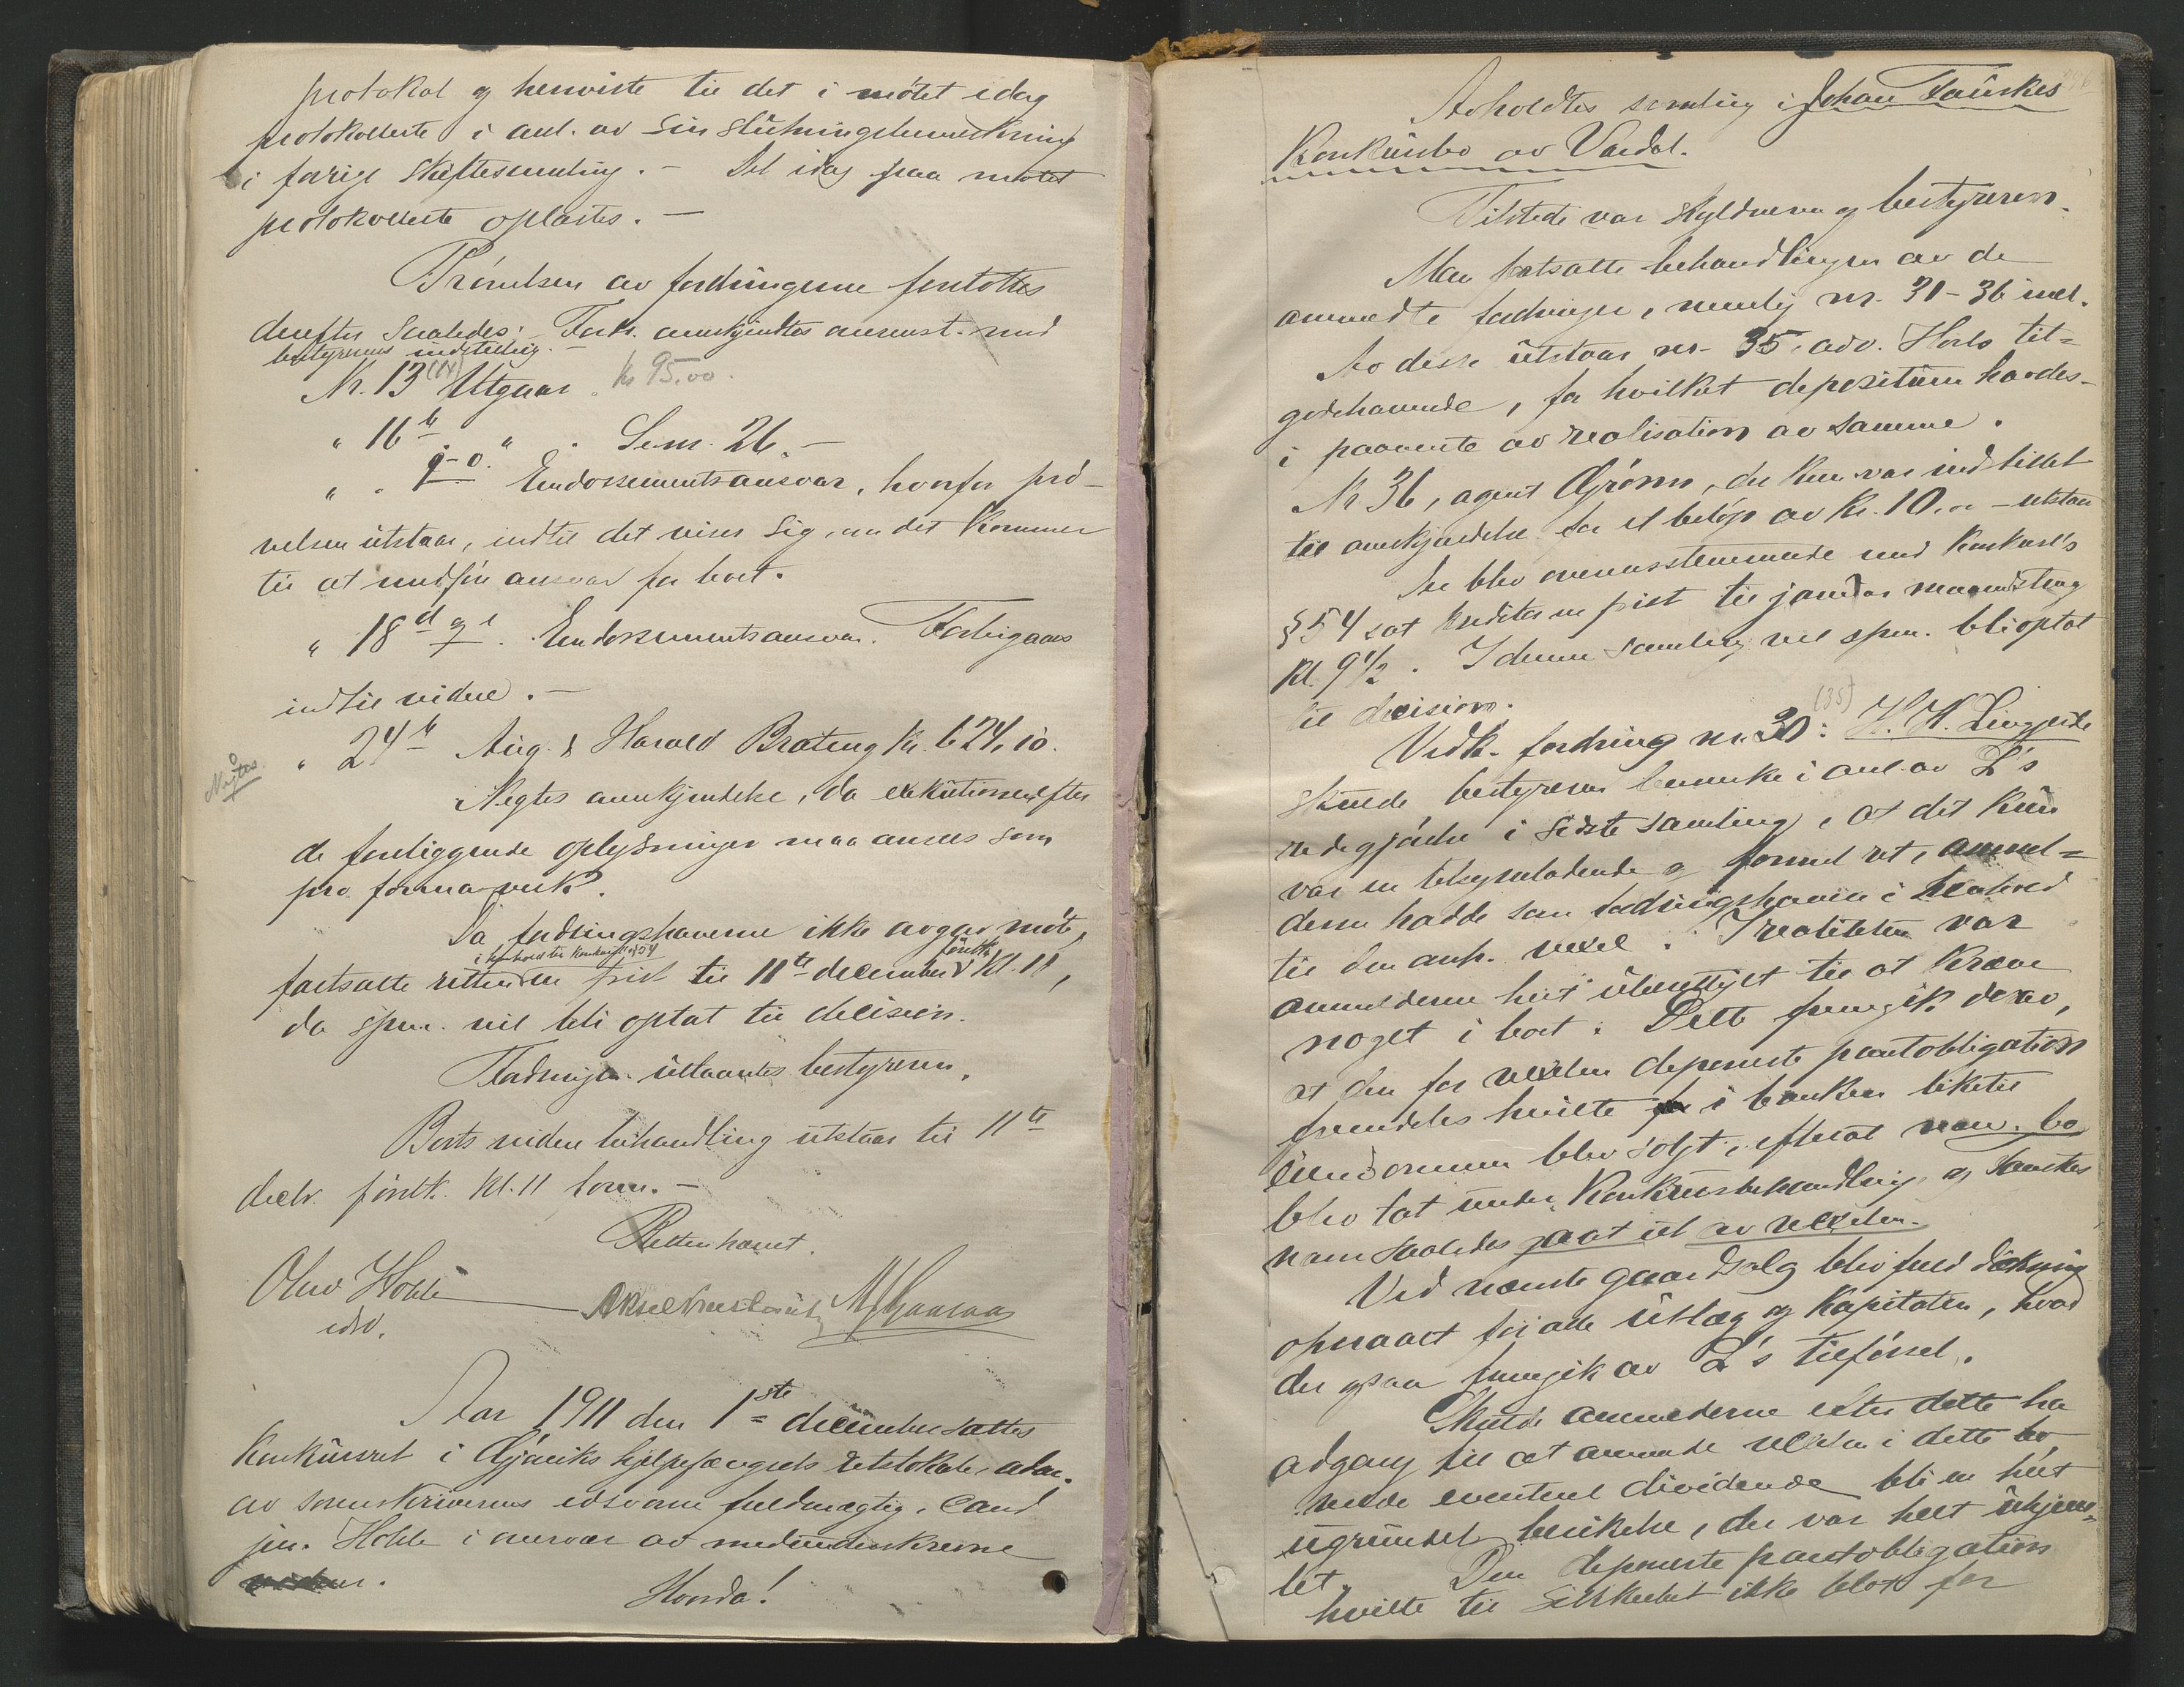 protokol og henviste til det i møtet idag
protokollerte i anl. av sin slutningsbemerkning
i forrige skiftesamling. — Det idag paa møtet
protokollerte oplæstes. —
Prøvelsen av fordringerne fortsattes
derefter saaledes: Fork. anerkjendtes overenst. med
bestyrerens indstilling. —
Nr. 13 (14) Utgaar. Kr 95.00.
" 16 b " Sum. 26. —
" " q-o. Endossementsansvar, hvorfor prø-
velsen utstaar, indtil det viser sig, om det kommer
til at medføre ansvar for boet.
" 18 d og e. Endossementsansvar. Forbigaaes
indtil videre. —
Negtes.
" 24 b Aug. & Harald Brateng kr. 624,10.
Negtes anerkjendelse, da exekutionen efter
de foreliggende oplysninger maa ansees som
pro forma verk.
Da fordringshaverne ikke avgav møte,
i henhold til Konkursl. § 54
fortsatte retten en frist til 11te december førstk. Kl. 11,
da spm. vil bli optat til decision.
Fordringen utlaantes bestyreren.
Boets videre behandling utstaar til 11te
decbr. førstk. Kl. 11 form. —
Retten hævet.
Olav Hohle
edsv.
Aar 1911 den 1ste december sattes
Konkursret i Gjøviks hjelpefængsels retslokale, adm.
av sorenskriverens edsvorne fuldmægtig, cand
jur. Hohle i nærvær av medunderskrevne
vidner.
Hvorda!
Avholdtes samling i Johan Fauskes
Konkursbo av Vardal.
Tilstede var skyldneren og bestyreren.
Man fortsatte behandlingen av de
anmeldte fordringer, nemlig nr. 31-36 incl.
Av disse utstaar nr. 35, adv. Hoels til-
godehavende, for hvilket depositum havdes
i paavente av realisation av samme.
Nr. 36, agent Grønn, der kun var indstillet
til anerkjendelse for et beløp av kr. 10,00 — utstaar
Der blev overensstemmende med Konkursl's
§ 54 sat kreditor en frist til januar maanedsting
Kl. 9 1/2. I denne samling vil spm. bli optat
til decision.
Vedk. fordring nr. 30: (35) H. H. Lingjerde
skulde bestyreren bemerke i anl. av L's
redegjørelse i sidste samling, at det kun
var en tilsyneladende og formel ret, anmel-
deren hadde som fordringshaver i henhold
til den anh. vexel. I realiteten var
anmelderen helt uberettiget til at kræve
noget i boet. Dette fremgik derav,
at den for vexlen deponerte pantobligation
fremdeles hvilte i banken like til
eiendommen blev solgt, efterat nævn. bo
blev tat under konkursbehandling, og Fauskes
navn saaledes gaat ut av vexelen.
Ved nævnte gaardsalg blev fuld dækning
opnaaet for alle utlæg og kapitalen, hvad
der ogsaa fremgik av L's tilførsel.
Skulde anmelderne efter dette ha
adgang til at anmelde vexlen i dette bo,
vilde eventuel dividende bli en helt
ugrundet berikelse, der var helt uhjem-
let. Den deponerte pantobligation
hvilte til sikkerhet ikke blot for